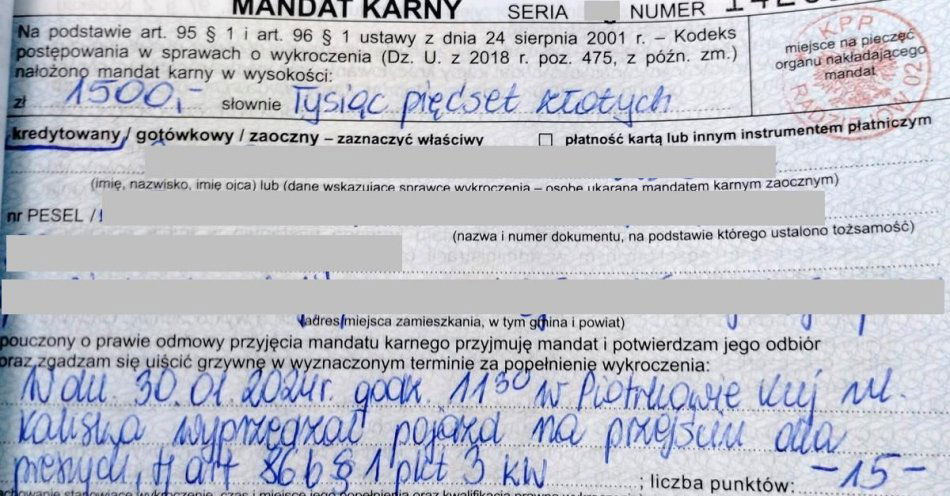 MANDAT KARNY SERIA NUMER
Na podstawie art. 95 § 1 i art. 96 § 1 ustawy z dnia 24 sierpnia 2001 r. – Kodeks
postępowania w sprawach o wykroczenia (Dz. U. z 2018 r. poz. 475, z późn. zm.)
nałożono mandat karny w wysokości:
miejsce na pieczęć
organu nakładającego
mandat
KPP
RADZIEJÓW 02
zł 1500,- słownie Tysiąc pięćset złotych
kredytowany / gotówkowy / zaoczny – zaznaczyć właściwy
płatność kartą lub innym instrumentem płatniczym
(imię, nazwisko, imię ojca) lub (dane wskazujące sprawcę wykroczenia – osobę ukaraną mandatem karnym zaocznym)
nr PESEL /
(nazwa i numer dokumentu, na podstawie którego ustalono tożsamość)
(adres miejsca zamieszkania, w tym gmina i powiat)
pouczony o prawie odmowy przyjęcia mandatu karnego przyjmuję mandat i potwierdzam jego odbiór
oraz zgadzam się uiścić grzywnę w wyznaczonym terminie za popełnienie wykroczenia:
W dn. 30.01.2024r. godz. 11 30 w Piotrkowie Kuj ul.
Kaliska wyprzedzał pojazd na przejściu dla
pieszych, tj art 86b § 1 pkt 3 kw ; liczba punktów: -15-